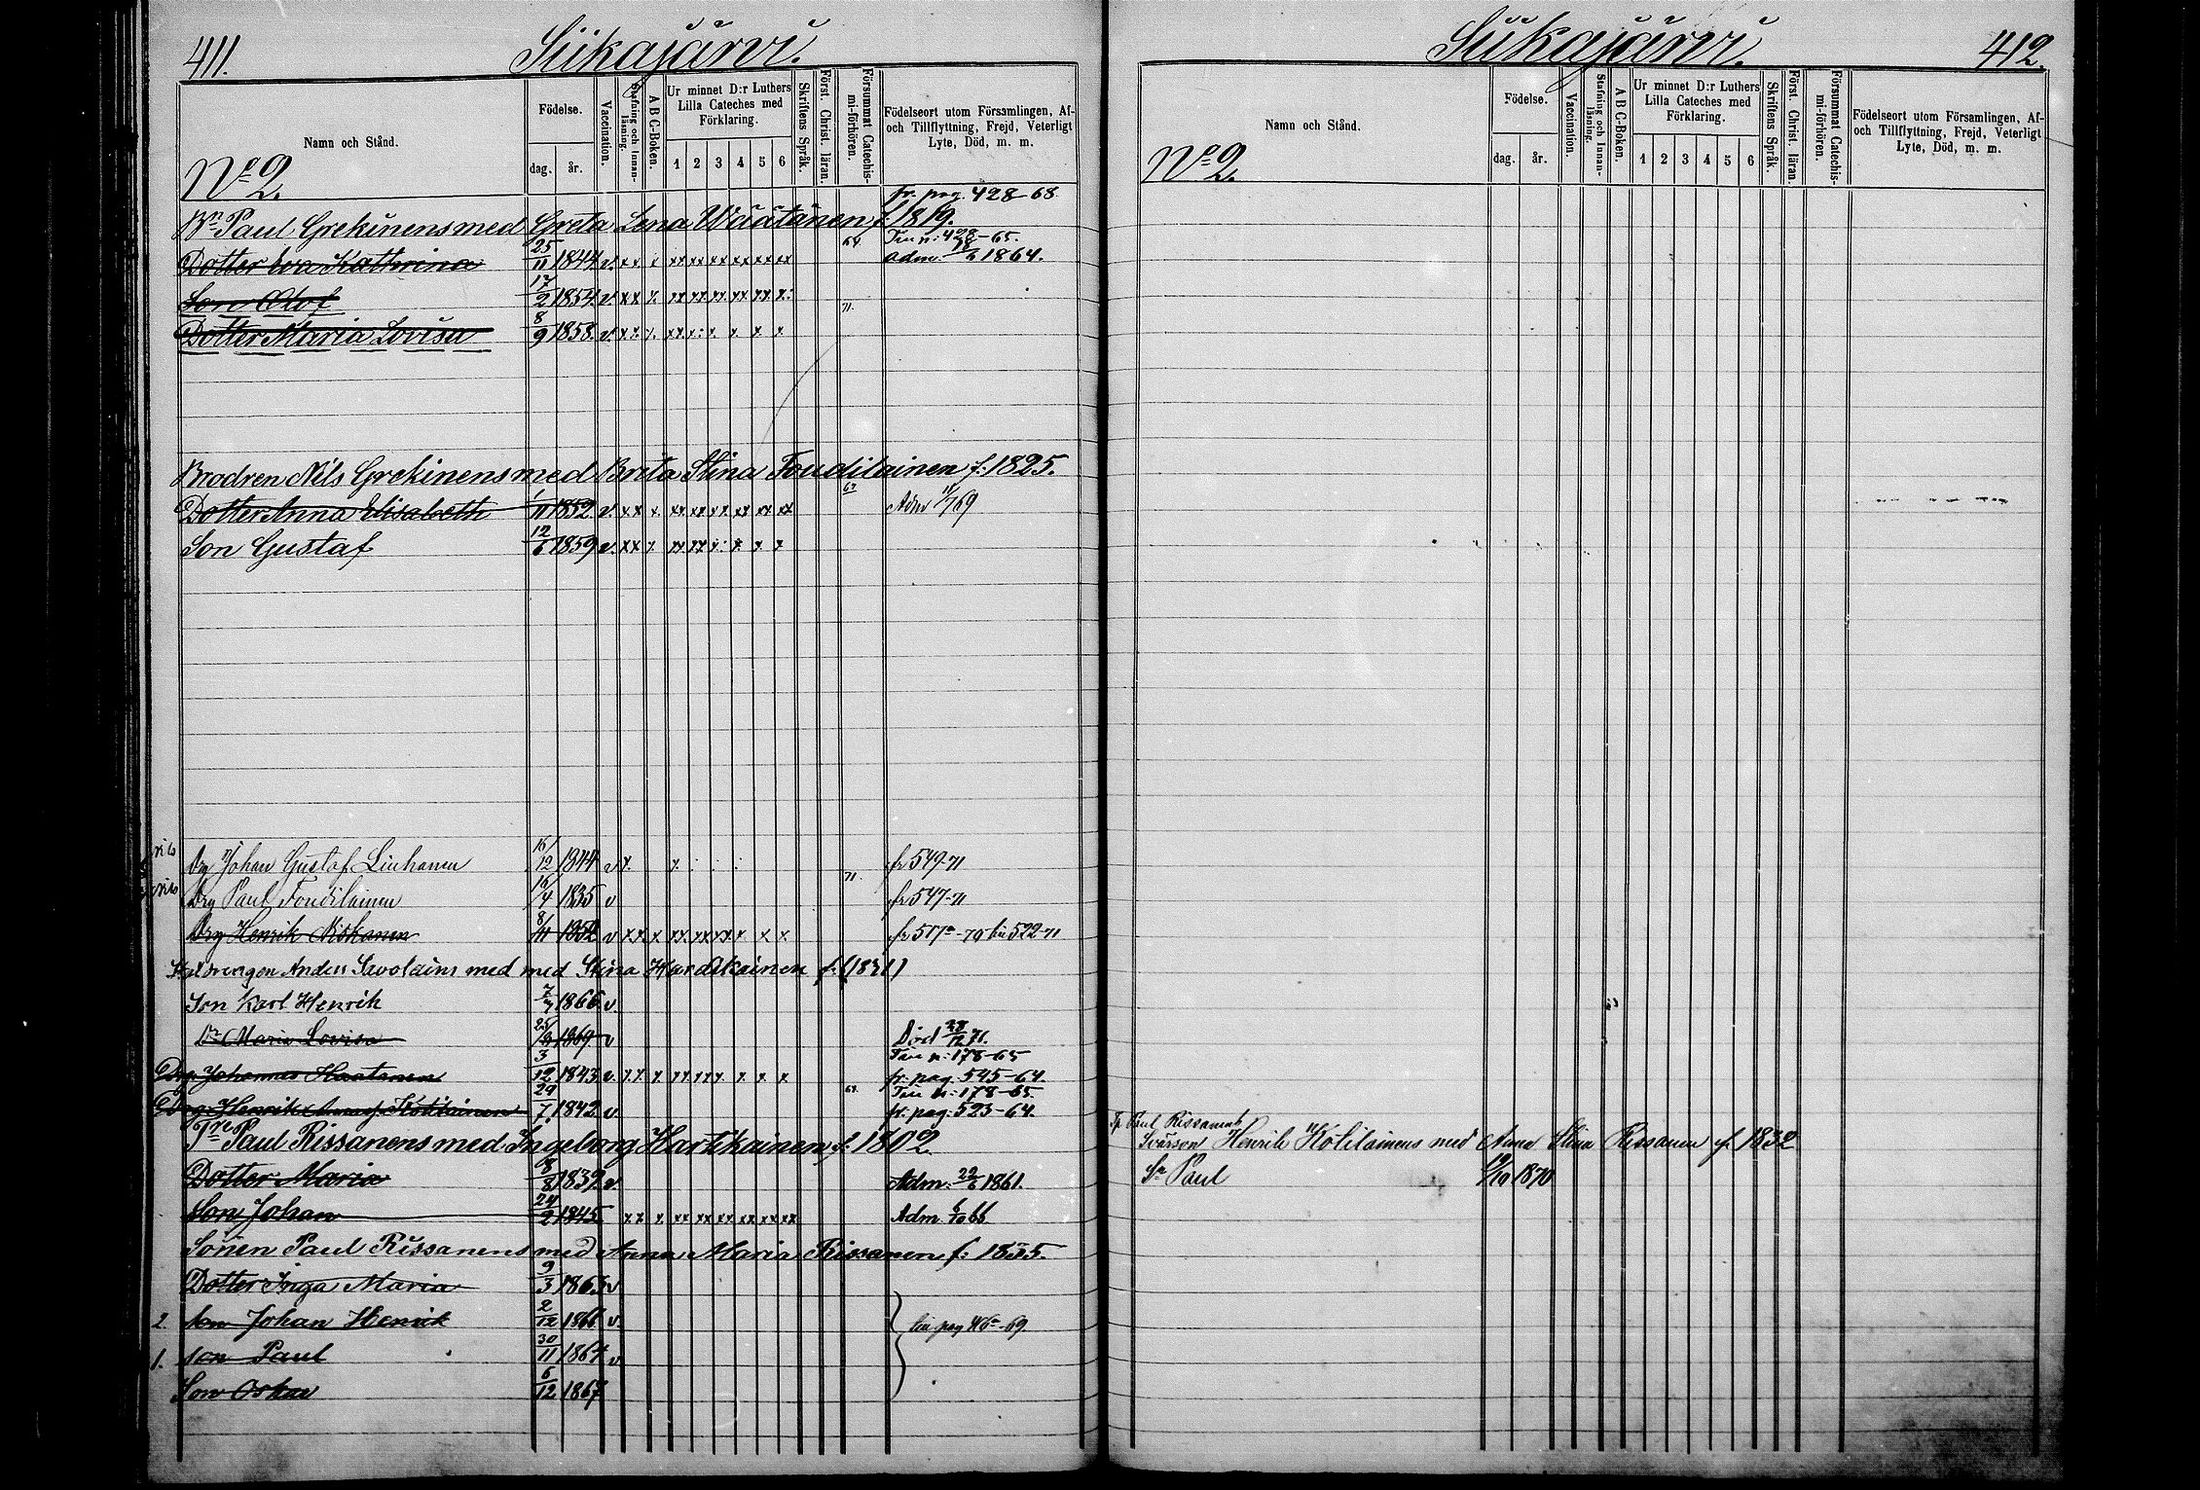 411.
Siikajärvi.
Namn och Stånd.
Födelse.
dag. år.
Vaccination.
Stafning och Innanläsning.
A B C-Boken.
Ur minnet D:r Luthers
Lilla Cateches med
Förklaring.
1 2 3 4 5 6
Skriftens Språk.
Först. Christ. läran.
Försummat Catechismi-förhören.
Födelseort utom Församlingen, Af-
och Tillflyttning, Frejd, Veterligt
Lyte, Död, m. m.
No 2.
fr. pag. 428-68
Paul Grekinens med Greta Lena Wäätänen f. 1819.
Dotter Eva Kathrina 25/11 1844 v. 64. 428-65. adm. 1864.
Son Olof 17/2 1854 v.
Dotter Maria Lovisa 8/9 1858. v. 71.
Brodren Nils Grekinens med Brita Stina Toudilainen f. 1825.
Dotter Anna Elisabeth 1/11 1852. v. Adm 69
Son Gustaf 12/6 1859 v.
Drg Johan Gustaf Liuhanen 16/12 1844 v fr 549-71
Drg Paul Toudilainen 16/4 1835 v 71. fr 547-71
Drg Henrik Niskanen 8/11 1852 v 522-71
Anders Savolains med med Stina Hardikainen f. (1831)
Son Karl Henrik 7/7 1866 v.
Dr Maria Lovisa 1869 v Död 28/12 71.
178-65
Drg Johannes 3/12 1843 v. fr. pag. 545-64.
178-65
Drg Henrik 29/7 1842 v. fr. pag. 523-64.
Paul Rissanens med Ingeborg Hartikainen f. 1802.
Dotter Maria 8/8 1839 v. Adm. 22/6 1861.
Son Johan 24/2 1845 Adm. 6/10 66
Sonen Paul Rissanens med Anna Maria Rissanen f. 1835.
Dotter Inga Maria 9/3 1863 v
2. Son Johan Henrik 2/12 1866 v. pag 46-69.
1. Son Paul 30/11 1864 v
Son Oskar 6/12 1867
Siikajärvi.
412.
Namn och Stånd.
Födelse.
dag. år.
Vaccination.
Stafning och Innanläsning.
A B C-Boken.
Ur minnet D:r Luthers
Lilla Cateches med
Förklaring.
1 2 3 4 5 6
Skriftens Språk
Först. Christ. läran.
Försummat Catechismi-förhören.
Födelseort utom Församlingen, Af-
och Tillflyttning, Frejd, Veterligt
Lyte, Död, m. m.
No 2.
Paul Rissanens
Svärson Henrik Kotilainens med Anna Stina Rissanen f. 1832
Sn Paul 1870